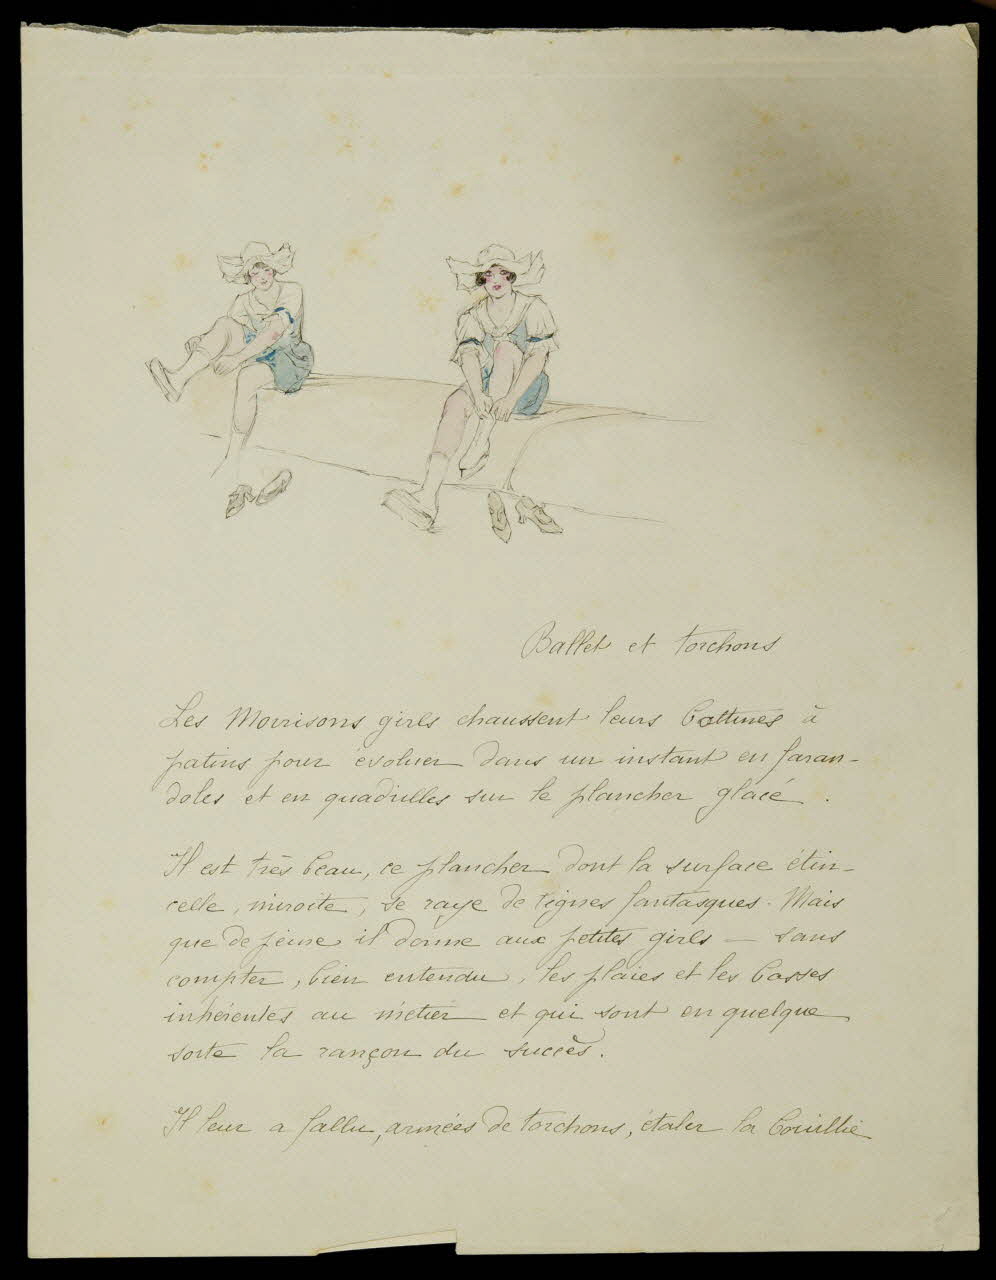 Ballet et torchons
Les Morrisons girls chaussent leurs bottines à
patins pour évoluer dans un instant en faran-
doles et en quadrilles sur le plancher glacé.
Il est très beau, ce plancher dont la surface étin-
celle, miroite, se raye de lignes fantasques. Mais
que de peine il donne aux petites girls — sans
compter, bien entendu, les plaies et les bosses
inhérentes au métier et qui sont en quelque
sorte la rançon du succès.
Il leur a fallu, armées de torchons, étaler la bouillie